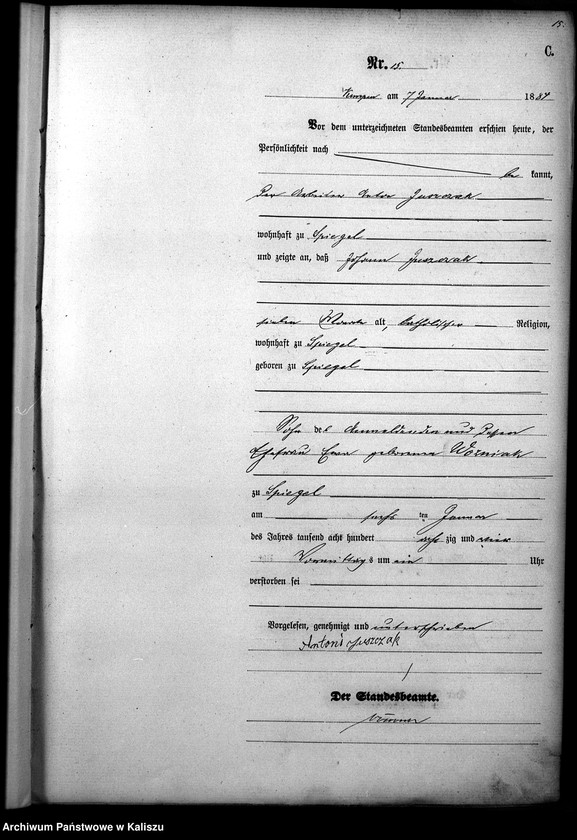 15.
C.
Nr. 15.
Kempen am 7 Januar 1884
Vor dem unterzeichneten Standesbeamten erschien heute, der
Persönlichkeit nach
be kannt,
der Arbeiter Anton Juszczak
wohnhaft zu Spiegel
und zeigte an, daß Johann Juszczak
sieben Monate alt, katholischer Religion,
wohnhaft zu Spiegel
geboren zu Spiegel
Sohn des Anmeldenden und dessen
Ehefrau Eva geborene Wozniak
zu Spiegel
am sechs ten Januar
des Jahres tausend acht hundert acht zig und vier
Vormittag s um ein Uhr
verstorben sei
Vorgelesen, genehmigt und unterschrieben
Antoni Juszczak
Der Standesbeamte.
Archiwum Państwowe w Kaliszu